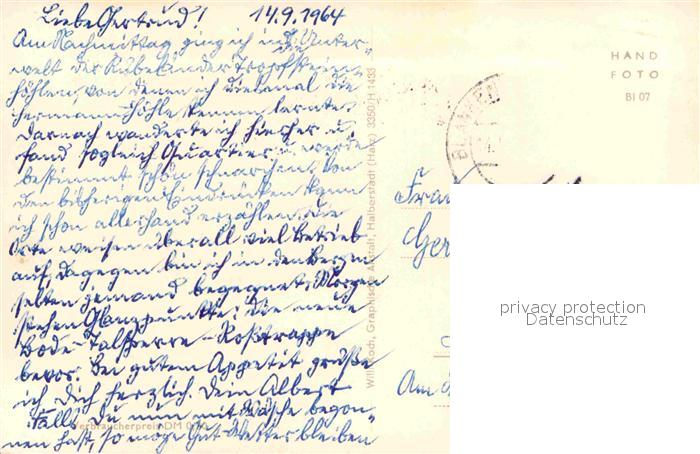 Liebe Gertrud! 14.9.1964
Am Nachmittag ging ich in die Unter-
welt der Rübeländer Tropfstein-
höhlen, von denen ich diesmal die
Hermannshöhle kennen lernte.
Darnach wanderte ich hierher u.
fand sogleich Quartier u. werde
bestimmt schön schnarchen. Von
den bisherigen Eindrücken kann
ich schon allerhand erzählen. Die
Orte weisen überall viel Betrieb
auf, dagegen bin ich in den Bergen
selten jemand begegnet. Morgen
stehen Glanzpunkte: die neue
Bode-Talsperre - Roßtrappe
bevor. Bei gutem Appetit grüße
ich Dich herzlich. Dein Albert
Falls Du nun mit Wäsche begon-
nen hast, so möge Gut-Wetter bleiben
Verbraucherpreis DM 0,20
Willi Koch, Graphische Anstalt, Halberstadt (Harz) 3350/H 1433
HAND
FOTO
BI 07
BLANKEN
Frau
Ger
Am
privacy protection
Datenschutz